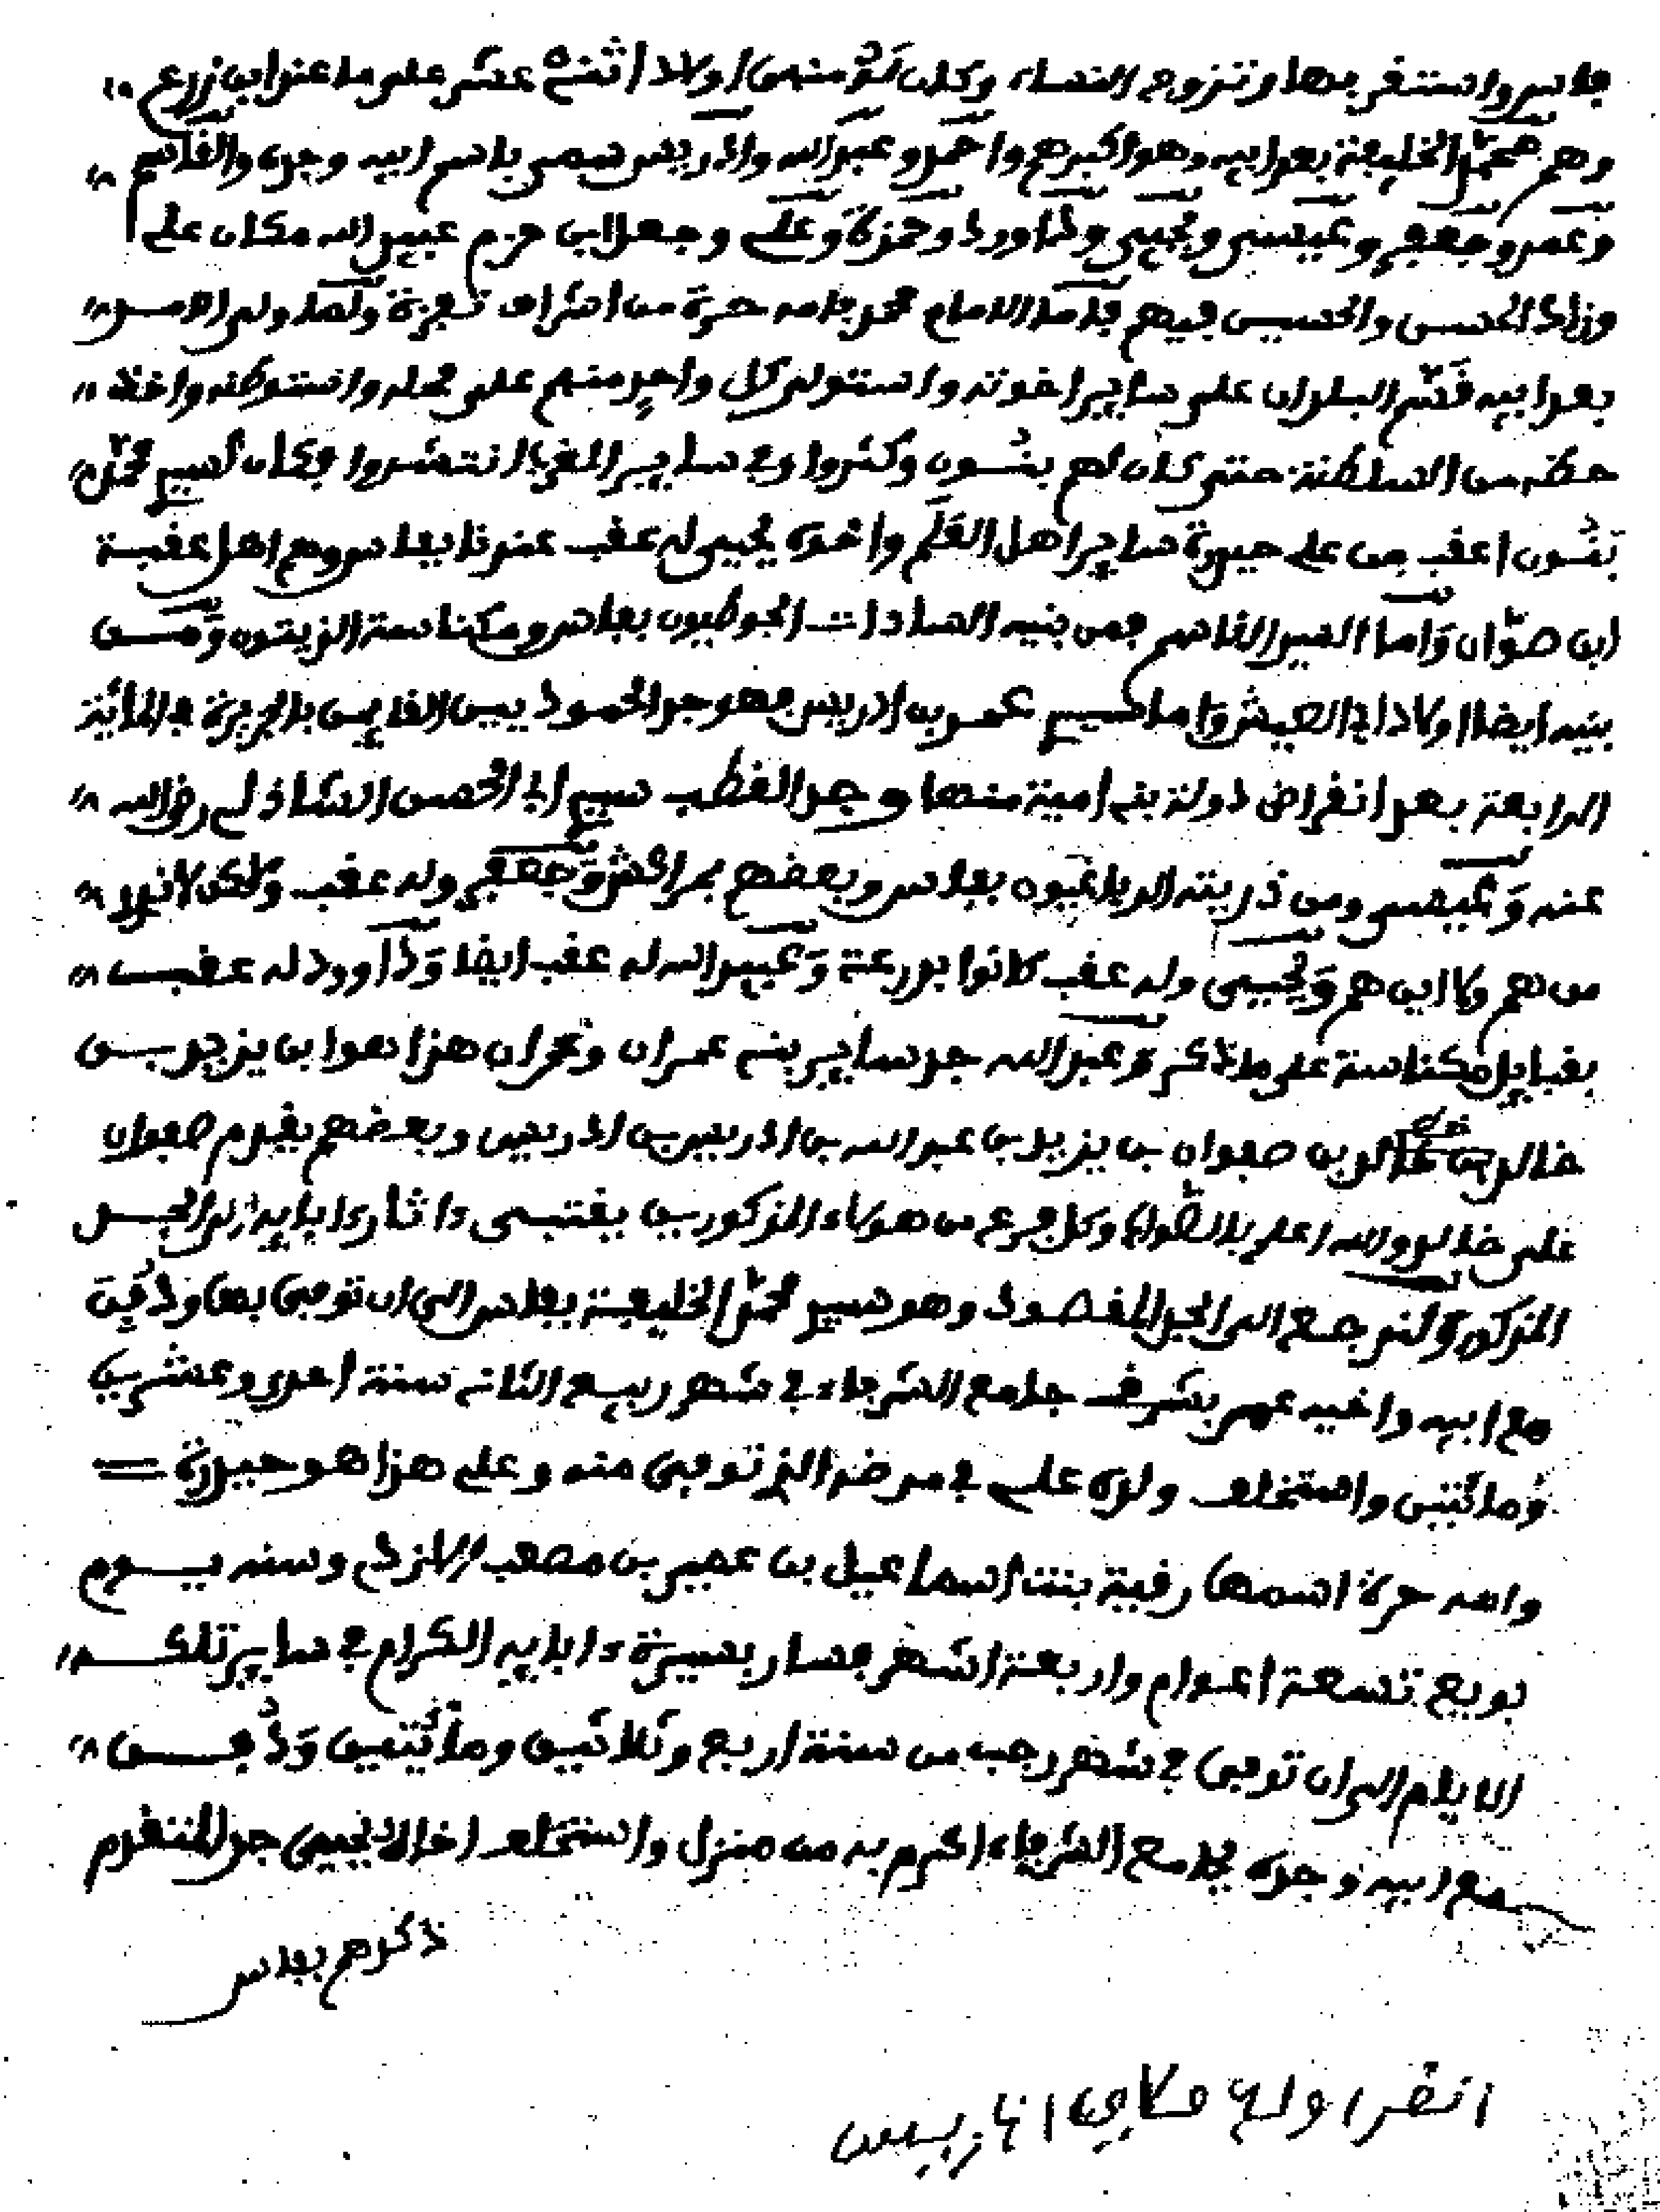 فاس واستقر بها وتزوج النساء وكان له منهن أولاد اثنى عشر على ما عند ابن زرع
وهم محمد الخليفة بعد ابيه وهو اكبرهم واحمد وعبد الله وادريس سمي باسم ابيه وجده والقاسم
وعمر وجعفر وعيسى ويحيى وداوود وحمزة وعلي وجعل ابن حزم عبيد الله مكان علي
وزاد الحسن والحسين فيهم فاما الامام محمد فامه حرة من اشراف نفزة ولما ولي الامر
بعد ابيه قسم البلدان على ساير اخوته واستولى كل واحد منهم على محله واستوطنه واخذ
حظه من السلطنة حتى كان لهم بنون وكثروا وفي ساير المغرب انتشروا فكان لسيد محمد
بنون اعقب من علي حيدرة ساير اهل العلم واخوه يحيى له عقب عندنا بفاس وهم اهل عقبة
ابن صوال واما السيد القاسم فمن بنيه السادات الجوطيون بفاس ومكناسة الزيتون ومن
بنيه ايضا اولاد ابي العيش واما سيدي عمر بن ادريس فهو جد الحموديين القايمين بالجزيرة في المائة
الرابعة بعد انقراض دولة بني امية منها وجد القطب سيدي ابي الحسن الشاذلي رضي الله
عنه وعيسى ومن ذريته الدباغيون بفاس وبعضهم بمراكش وجعفر وله عقب ولاكن لا ندري
من هم ولا اين هم ويحيى وله عقب كانوا بدرعة وعبيد الله له عقب ايضا وداوود له عقب
بقبايل مكناسة على ما ذكر وعبد الله جد ساير بني عمران وعمران هذا هو ابن يزيد بن
خالد بن صفوان بن يزيد بن عبد الله بن ادريس بن ادريس وبعضهم يقدم صفوان
على خالد والله اعلم بالصواب وكل فرع من هولاء المذكورين يقتبس ءاثار ءابايه الى الجد
المذكور ولنرجع الى الجد المقصود وهو سيد محمد الخليفة بفاس الى ان توفي بها ودفن
مع ابيه واخيه عمر بشرف جامع الشرفاء في شهر ربيع الثاني سنة احدى وعشرين
ومائتين واستخلف ولده علي في مرضه الذي توفي منه وعلي هذا هو حيدرة
وامه حرة اسمها رقية بنت اسماعيل بن عمير بن مصعب الازدي وسنه يوم
بويع تسعة اعوام واربعة اشهر فسار بسيرة ءابايه الكرام في ساير تلك
الايام الى ان توفي في شهر رجب من سنة اربع وثلاثين ومائتين ودفن
مع ابيه وجده بجامع الشرفاء اكرم به من منزل واستخلف اخاه يحيى جد المتقدم
ذكرهم بفاس
انظر اوله